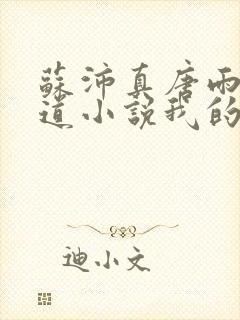 蘇沛真唐雨
道小說我的
迪小文